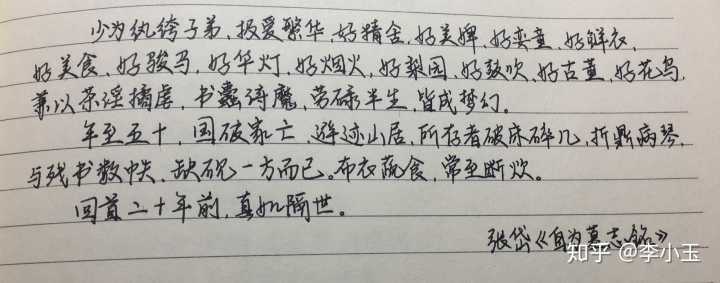 少为纨绔子弟,极爱繁华,好精舍,好美婢,好娈童,好鲜衣,
好美食,好骏马,好华灯,好烟火,好梨园,好鼓吹,好古董,好花鸟,
兼以茶淫橘虐,书蠹诗魔,劳碌半生,皆成梦幻。
年至五十,国破家亡,避迹山居,所存者破床碎几,折鼎病琴,
与残书数帙,缺砚一方而已。布衣蔬食,常至断炊。
回首二十年前,真如隔世。
张岱《自为墓志铭》
知乎 @李小玉